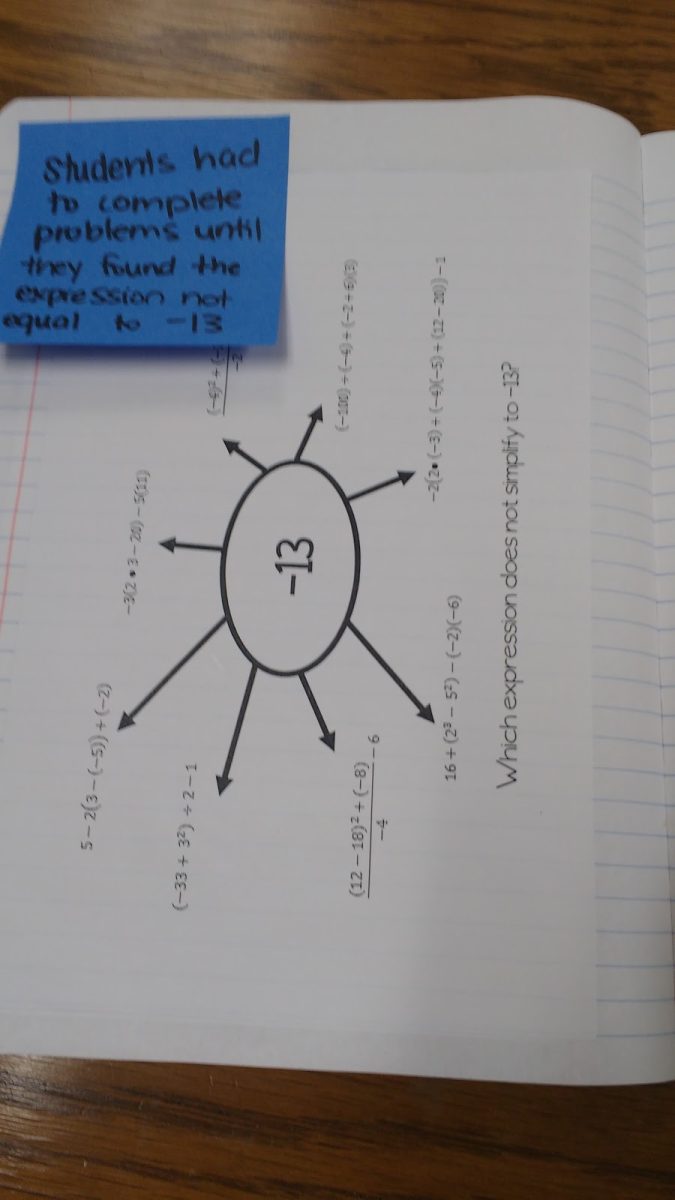 Students had
to complete
problems until
they found the
expression not
equal to -13
5 − 2(3 − (−5)) + (−2)
−3(2 • 3 − 20) − 5(11)
(−4)² + (−
−2
(−33 + 3²) ÷ 2 − 1
−13
(−100) ÷ (−4) + (−2 + 6)(3)
(12 − 18)² + (−8)
−4
− 6
−2(2• (−3) + (−4)(−5) + (12 − 20)) − 1
16 + (2³ − 5²) − (−2)(−6)
Which expression does not simplify to −13?